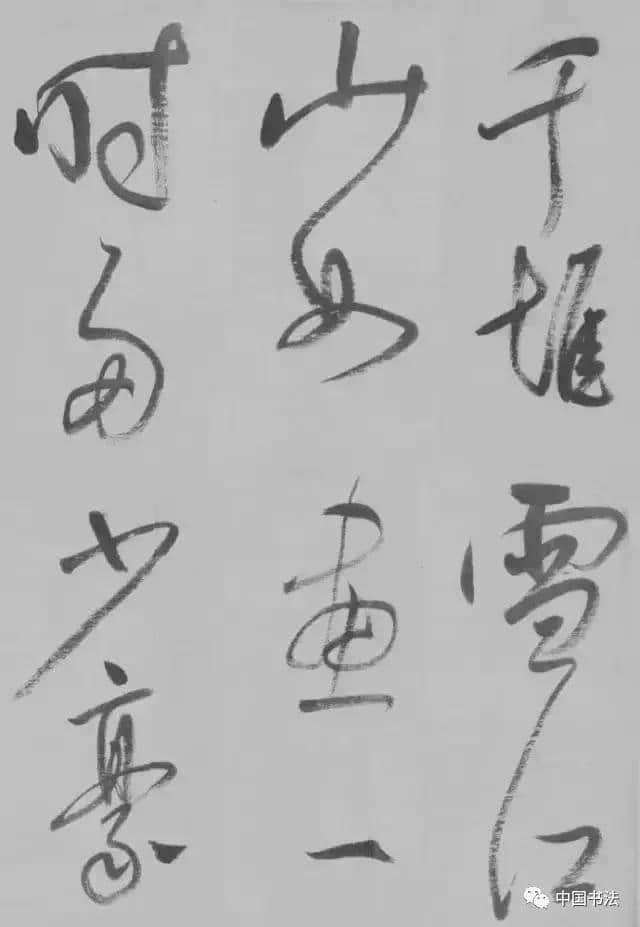 千堆雪江
山如画一
时多少豪
中国书法